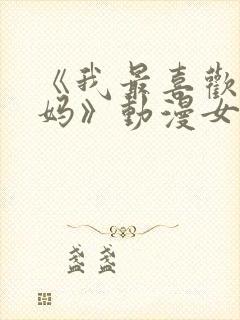 《我最喜歡
妈》動漫女
盏盏